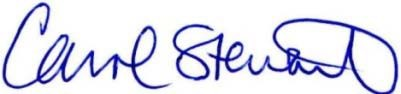 Carol Stewart